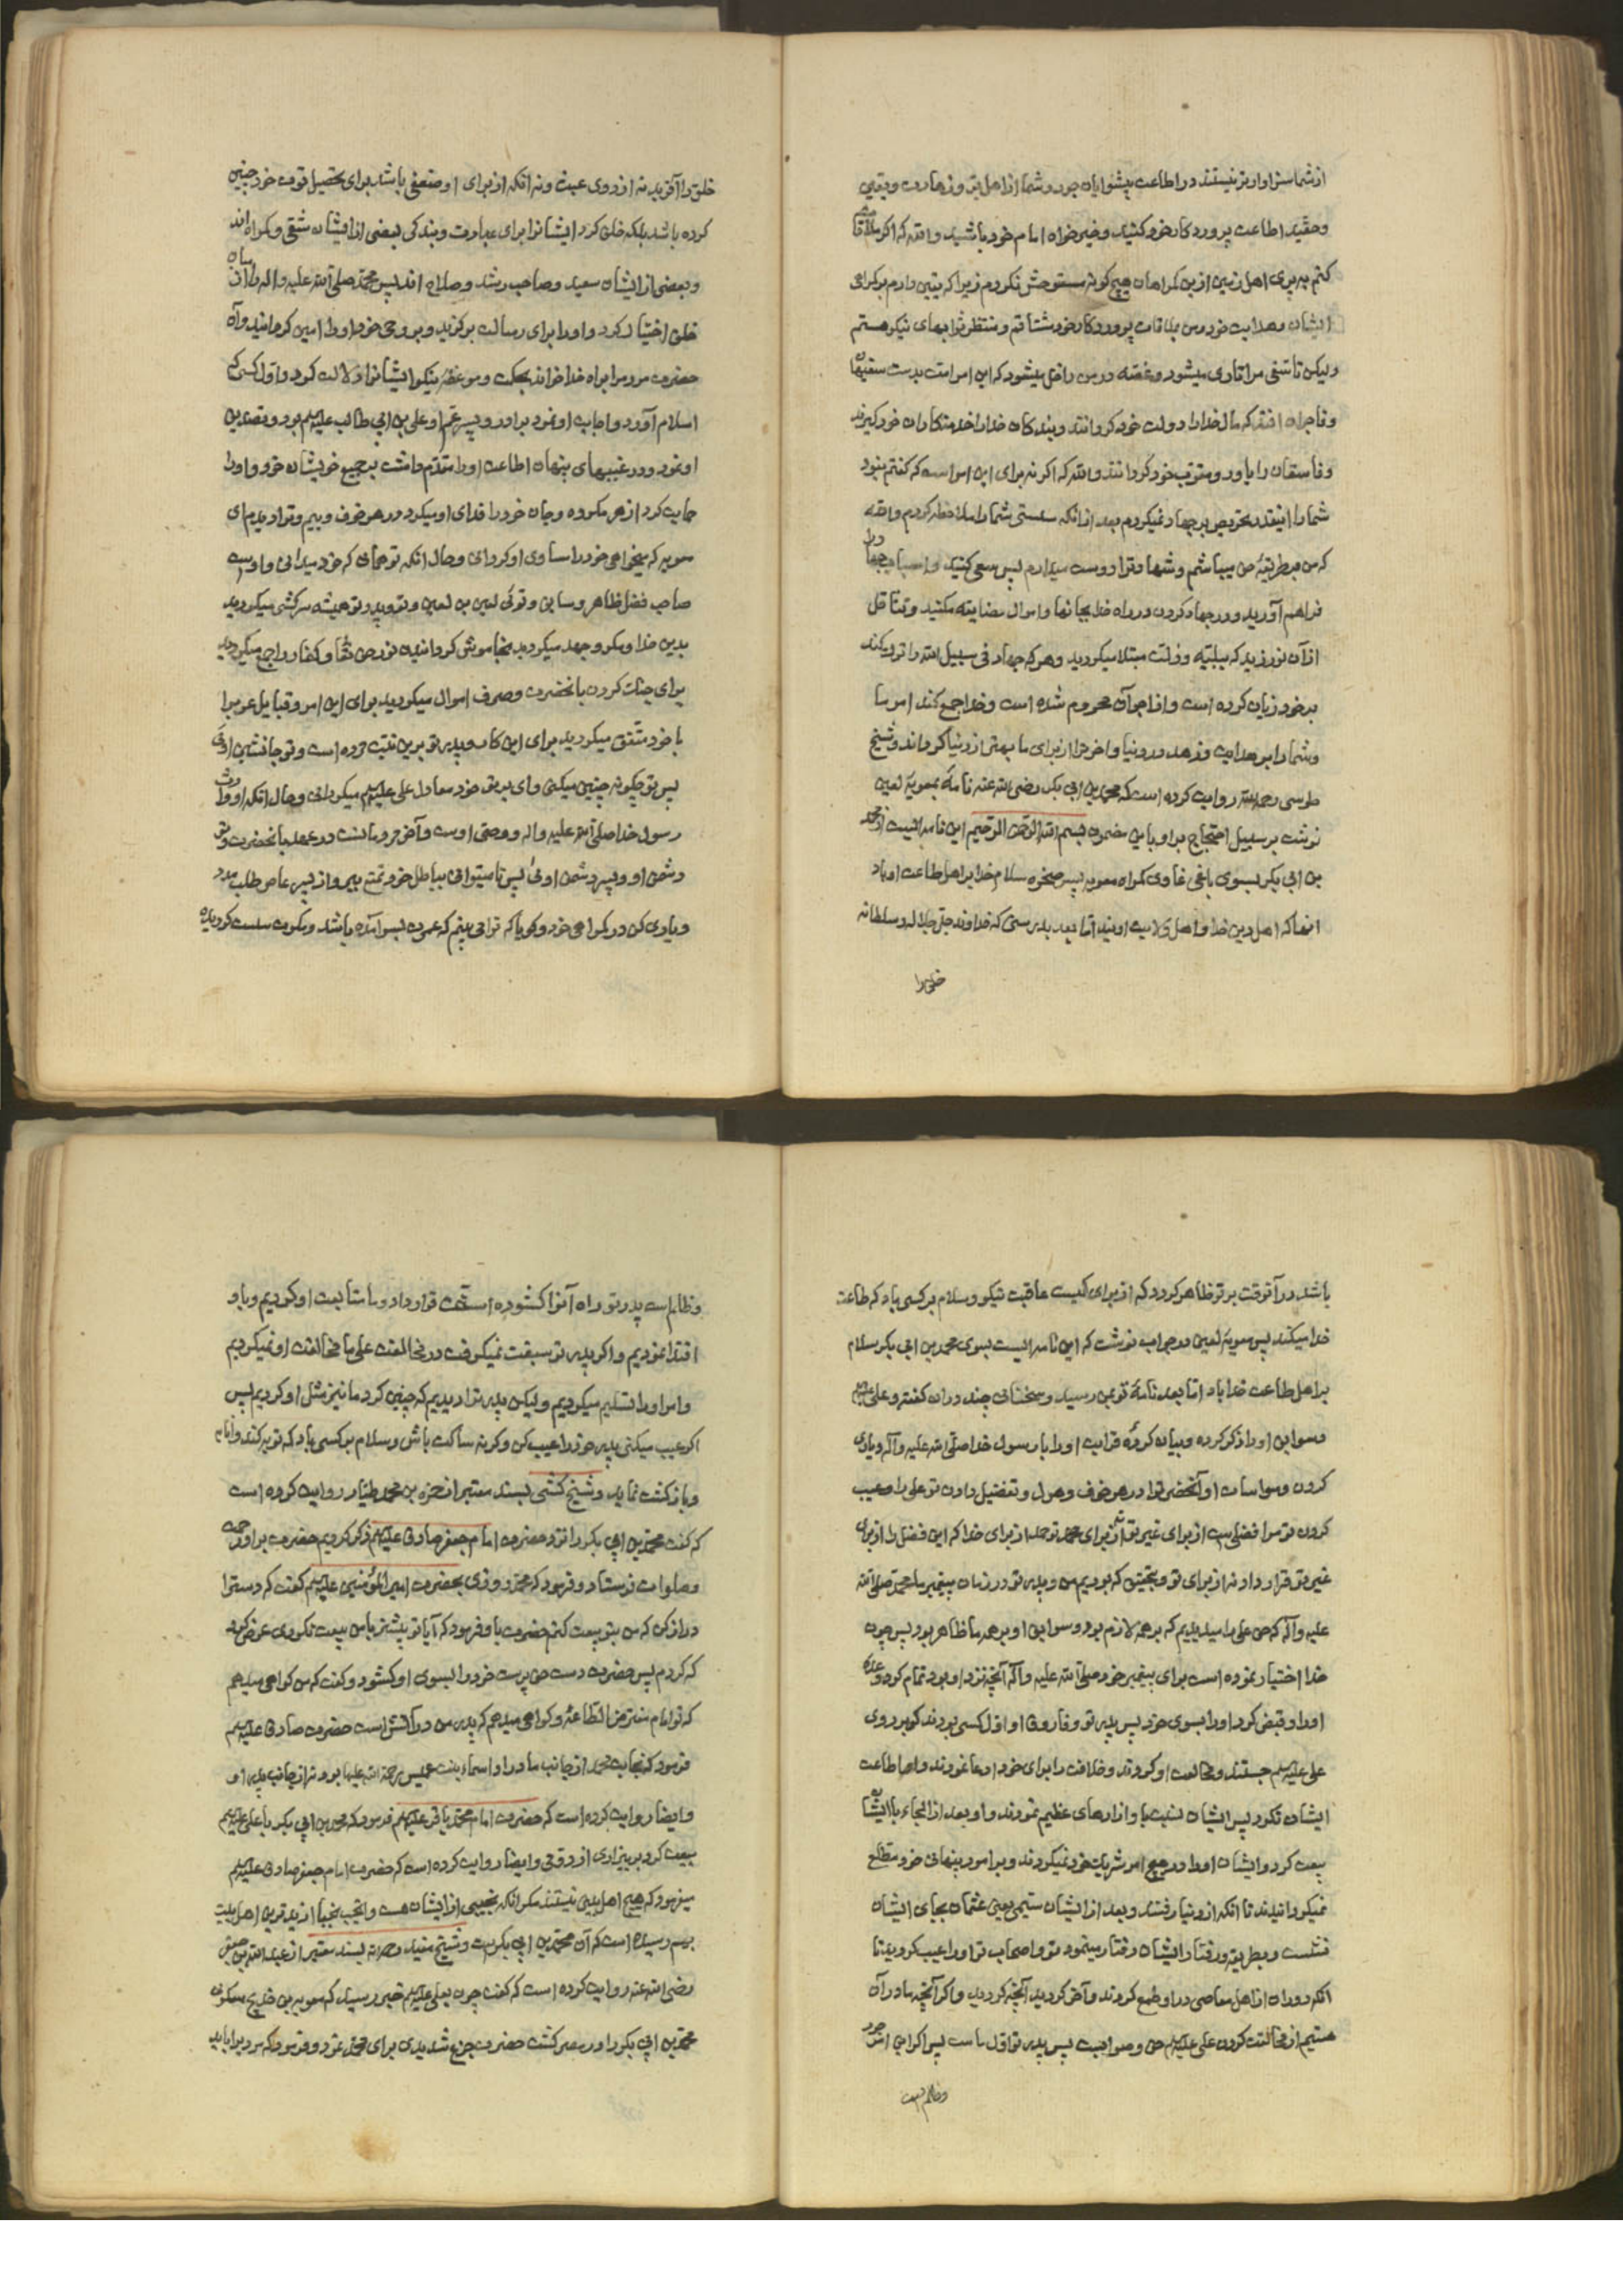 ازشما سزاوارتر نیستند در اطاعت پیشوایان جور و شما از اهل بر و زهادت و یقین
و حقید اطاعت پروردکار خود کنید و خیرخواه امام خود باشید والله که اکر ملاقات
کنم به پری اهل زمین ازین کمراهان هیچ کونه مستوحش نکردم زیرا که یقین دارم بر کمراهی
ایشان و هدایت خود و من بملاقات پروردکار خود مشتاقم و منتظر ثوابهای نیکو هستم
ولیکن تاسفی مرا تاری میشود و غصه در من داخل میشود که این امر امت بدست سفیهان
و فاجران افتد که مال خدا را دولت خود کردانند و بندکان خدا را خدمتکاران خود کیرند
و فاسقان را یاور و مقرب خود کردانند والله که اکر نه برای این امر است که کفتم بنود
شما را اینقدر تحریص بر جهاد نمیکردم بعد از انکه سستی شما را ملاحظه کردم والله
که من بر طریقه حق میباشم و شهادت را دوست میدارم پس سعی کنید و اسباب جهاد را
فراهم آورید و در جهاد کردن در راه خدا بجانها و اموال مضایقه مکنید و تثاقل
از آن نورزید که ببلیه و ذلت مبتلا میکردید و هر که جهاد فی سبیل الله را ترک کند
بر خود زیان کرده است و از اجر آن محروم شده است و خدا جمع کند امر ما
و شما را بر هدایت و زهد در دنیا و اخرت را از برای ما بهتر از دنیا کرداند و شیخ
طوسی رحمه الله روایت کرده است که محمد بن ابی بکر رضی الله عنه نامه بمعویهٔ لعین
نوشت بر سبیل احتجاج بر او باین مضمون بسم الله الرحمن الرحیم این نامه ایست از محمد
بن ابی بکر بسوی باغی غاوی کمراه معویه پسر صخره سلام خدا بر اهل طاعت او باد
انها که اهل دین خدا و اهل ولایت اویند اما بعد بدرستی که خداوند جل جلاله و سلطانه
خلق را
خلق را آفرید نه از روی عبث و نه انکه از برای او ضعفی باشد برای تحصیل قوت خود چنین
کرده باشد بلکه خلق کرد ایشانرا برای عبادت و بندکی بعضی از ایشان شقی و کمراه اند
و بعضی از ایشان سعید و صاحب رشد و صلاح اند پس محمد صلی الله علیه واله را از میان
خلق اختیار کرد و او را برای رسالت برکزید و بر وحی خود او را امین کردانید و آن
حضرت مردم را براه خدا خواند بحکمت و موعظهٔ نیکو ایشانرا دلالت کرد و اول کسی که
اسلام آورد و اجابت او نمود برادر و پسر عم او علی بن ابی طالب علیه السلم بود و تصدیق
او نمود و در غیبهای پنهان اطاعت او را مقدم داشت بر جمیع خویشان خود و او را
حمایت کرد از هر مکروه و جان خود را فدای او میکرد در هر خوف و بیم و ترا دیدم ای
معویه که میخواهی خود را مساوی او کردانی و حال انکه تو همانی که خود میدانی و او است
صاحب فضل ظاهر و سابق و توئی لعین بن لعین و تو و پدر تو همیشه سرکشی میکردید
بدین خدا و مکر و جهد میکردید بخاموش کردانیدن نور حق تعا و کفار را جمع میکردید
برای جنک کردن بانحضرت و صرف اموال میکردید برای این امر و قبایل عرب را
با خود متفق میکردید برای این کار و پدر تو برین نیت مرده است و تو جانشین اوئی
پس تو چکونه چنین میکنی و ای بر تو خود معادل علی علیه السلم میکردانی و حال انکه او وارث
رسول خدا صلی الله علیه واله و وصی اوست و آخر مردمانست در عهد بانحضرت و تو
دشمن او و پسر دشمن اوئی پس تا میتوانی بباطل خود تمتع ببر و از پسر عاص طلب مدد
و یاری کن در کمراهی خود و کویا که ترا می بینم که عمرت بسر آمده باشد و مکرت سست کردیده
باشد در آنوقت بر تو ظاهر کردد که از برای کیست عاقبت نیکو و سلام بر کسی باد که طاعت
خدا میکند پس معویهٔ لعین در جواب نوشت که این نامه ایست بسوی محمد بن ابی بکر سلام
بر اهل طاعت خدا باد اما بعد نامهٔ تو بمن رسید و سخنانی چند در ان کفته و علی علیه السلم
و سوابق او را ذکر کرده و بیان کرده قرابت او را با رسول خدا صلی الله علیه واله و یاری
کردن و مواسات او آنحضرترا در هر خوف و هول و تفضیل دادن تو علی را و عیب
کردن تو مرا فضلیست از برای غیر تو نه از برای تو حمد از برای خدا که این فضل را از برای
غیر تو قرار داد نه از برای تو و بتحقیق که بودیم من و پدر تو در زمان پیغمبر ما محمد صلی الله
علیه واله که حق علی را میدیدیم که بر همه لازم بود و سوابق او بر همه ما ظاهر بود پس چون
خدا اختیار نموده است برای پیغمبر خود صلی الله علیه واله آنچه نزد او بود تمام کرد وعدهٔ
او را و قبض کرد او را بسوی خود پس پدر تو و فاروق او اول کسی بودند که بر روی
علی علیه السلم جستند و مخالفت او کردند و خلافت را برای خود ادعا نمودند و اما اطاعت
ایشان نکرد پس ایشان نسبت باو ازارهای عظیم نمودند و او بعد از الجاء با ایشان
بیعت کرد و ایشان او را در هیچ امر شریک خود نمیکردند و بر امور پنهانی خود مطلع
نمیکردانیدند تا انکه از دنیا رفتند و بعد از ایشان سیمی یعنی عثمان بجای ایشان
نشست و بطریقه و رفتار ایشان رفتار مینمود تو و اصحاب تو او را عیب کردید تا
انکه دوران از اهل معاصی در او طمع کردند و آخر کردید آنچه کردید و اکر آنچه ما در آن
هستیم از مخالفت کردن علی علیه السلم حق و صوابست پس پدر تو اول ماست پس اکر این امر جور
و ظلم است
و ظلم است پدر تو راه آنرا کشوده است و قرار داد و ما متابعت او کردیم و باو
اقتدا نمودیم و اکر پدر تو سبقت نمیکرفت در مخالفت علی ما مخالفت او نمیکردیم
و امر او را تسلیم میکردیم ولیکن پدر ترا دیدیم که چنین کرد ما نیز مثل او کردیم پس
اکر عیب میکنی پدر خود را عیب کن و کرنه ساکت باش و سلام بر کسی باد که توبه کند و انابه
و بازکشت نماید و شیخ کشی بسند معتبر از حمزه بن محمد طیار روایت کرده است
که کفت محمد بن ابی بکر را نزد حضرت امام جعفر صادق علیه السلم ذکر کردیم حضرت بر او رحمت
و صلوات فرستاد و فرمود که محمد روزی بحضرت امیرالمؤمنین علیه السلم کفت که دستت را
دراز کن که من بتو بیعت کنم حضرت باو فرمود که آیا تو پیشتر با من بیعت نکردی عرض کرد
که کردم پس حضرت دست حق پرست خود را بسوی او کشود و کفت که من کواهی میدهم
که تو امام مفترض الطاعهٔ و کواهی میدهم که پدر من در آتش است حضرت صادق علیه السلم
فرمود که نجابت محمد از جانب مادر او اسماء بنت عمیس رحمة الله علیها بود نه از جانب پدر او
و ایضا روایت کرده است که حضرت امام محمد باقر علیه السلم فرمود که محمد بن ابی بکر با علی علیه السلم
بیعت کرد بر بیزاری از دومی و ایضا روایت کرده است که حضرت امام جعفر صادق علیه السلم
میفرمود که هیچ اهل بیتی نیستند مکر انکه نجیبی از ایشان هست و انجب نجبا از بدترین اهل بیت
بهم رسیده است که آن محمد بن ابی بکرست و شیخ مفید رحمه الله بسند معتبر از عبدالله بن جعفر
رضی الله عنه روایت کرده است که کفت چون بعلی علیه السلم خبر رسید که معویه بن خدیج سکونی
محمد بن ابی بکر را در مصر کشت حضرت جزع شدیدی برای محمد نمود و فرمود که مردم را باید